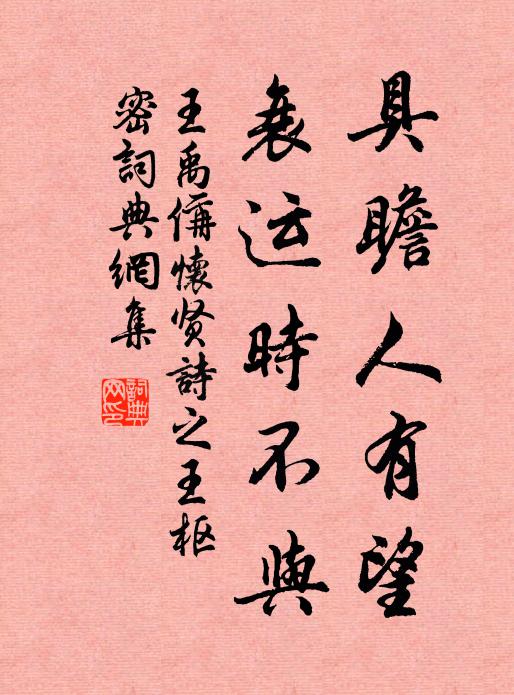 具瞻人有望
衰运時不與
王禹偁懷贤詩之王枢
密詞典網集
詞典
网印